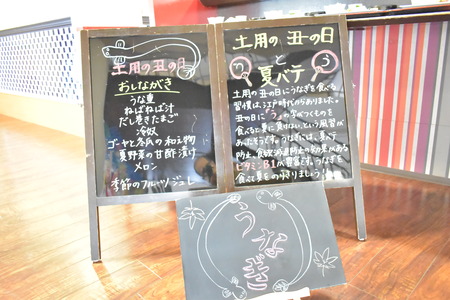 土用の丑の日
おしながき
うな重
ねばねば汁
だし巻きたまご
冷奴
ゴーヤと冬瓜の和え物
夏野菜の甘酢漬け
メロン
季節のフルーツジュレ
土用の丑の日
と
夏バテ
う
う
土用の丑の日にうなぎを食べる
習慣は、江戸時代からありました。
丑の日に「う」の字がつくものを
食べると夏に負けない、という風習が
あったそうです。うなぎには、夏バテ
防止、食欲減退防止の効果がある
ビタミンB1が豊富です。うなぎを
食べて夏をのりきりましょう!
うなぎ